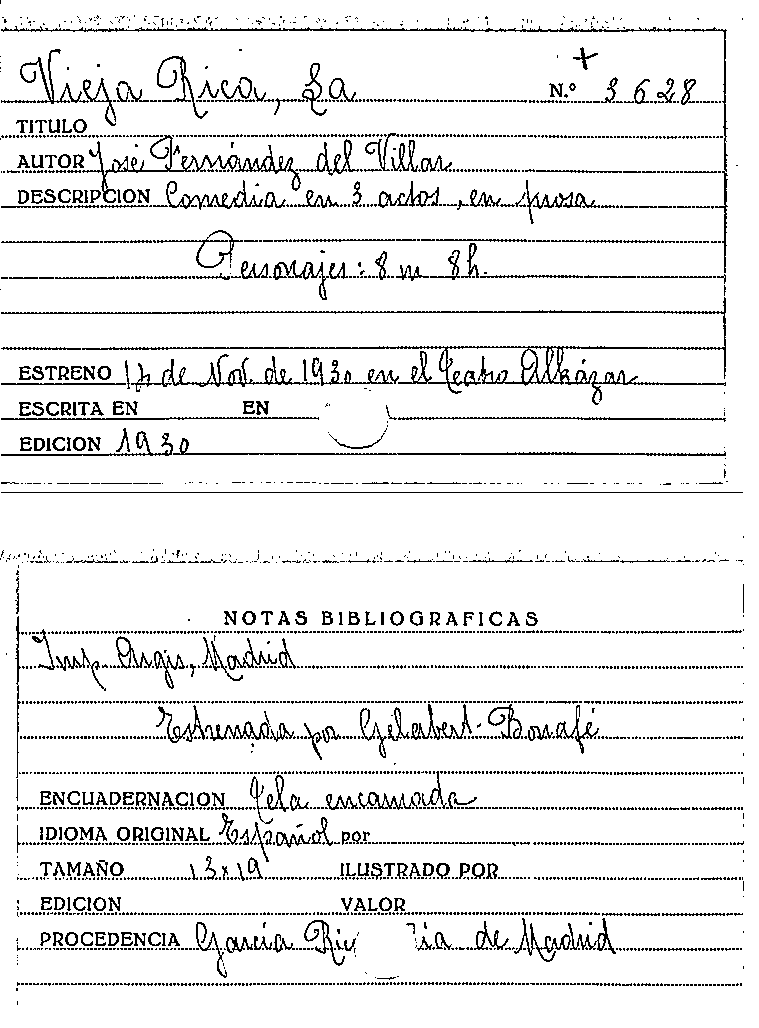 +
Vieja Rica, La N.º 3628
TITULO
AUTOR José Fernández del Villar
DESCRIPCION Comedia en 3 actos, en prosa
Personajes: 8 m 8h.
ESTRENO de Nov. de 1930 en el Teatro Alkázar
ESCRITA EN EN
EDICION 1930
NOTAS BIBLIOGRAFICAS
Imp. Argis, Madrid
Estrenada por Gelabert-Bonafé
ENCUADERNACION Tela encarnada
IDIOMA ORIGINAL Español por
TAMAÑO 13x19 ILUSTRADO POR
EDICION VALOR
PROCEDENCIA García de Madrid